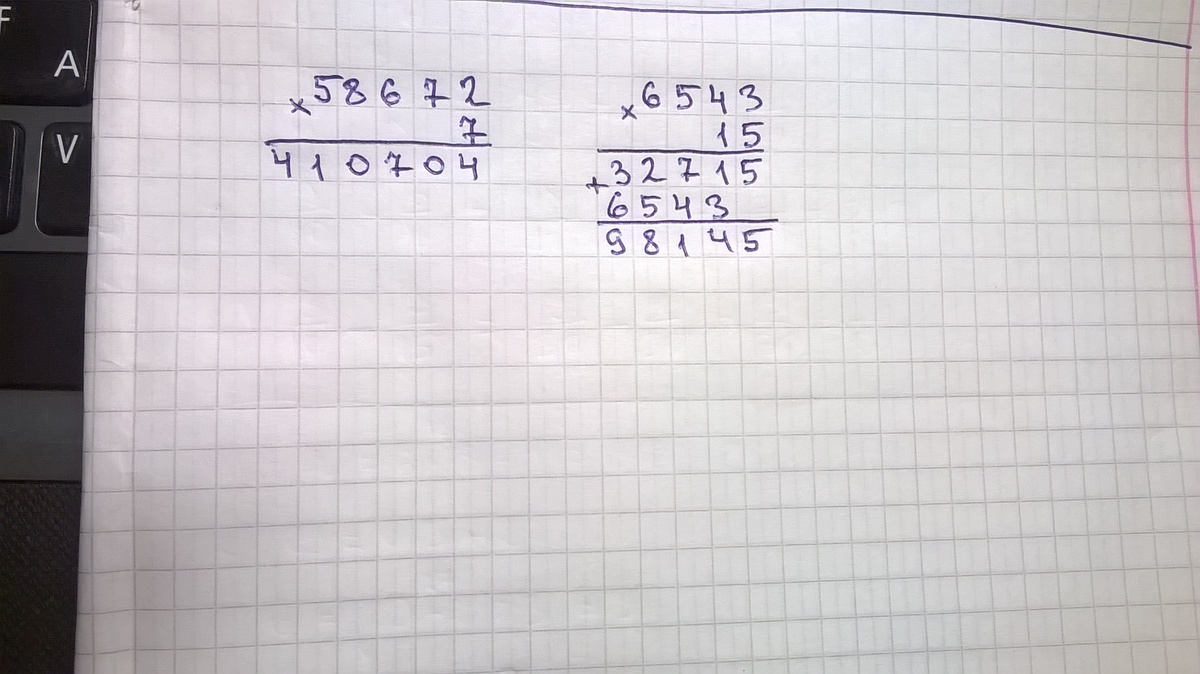 F
A
V
×58672
7
410704
×6543
15
+32715
6543
98145